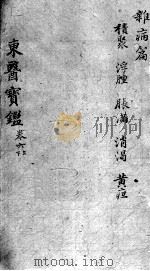 雜病篇
積聚 浮腫 脹滿 消渴 黄疸
東醫寶鑑